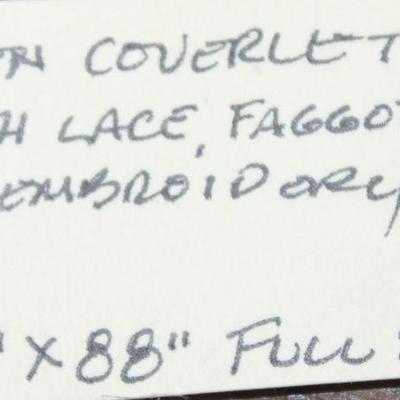 ON COVERLET
H LACE, FAGGO
EMBROIDORY
" X 88" FULL